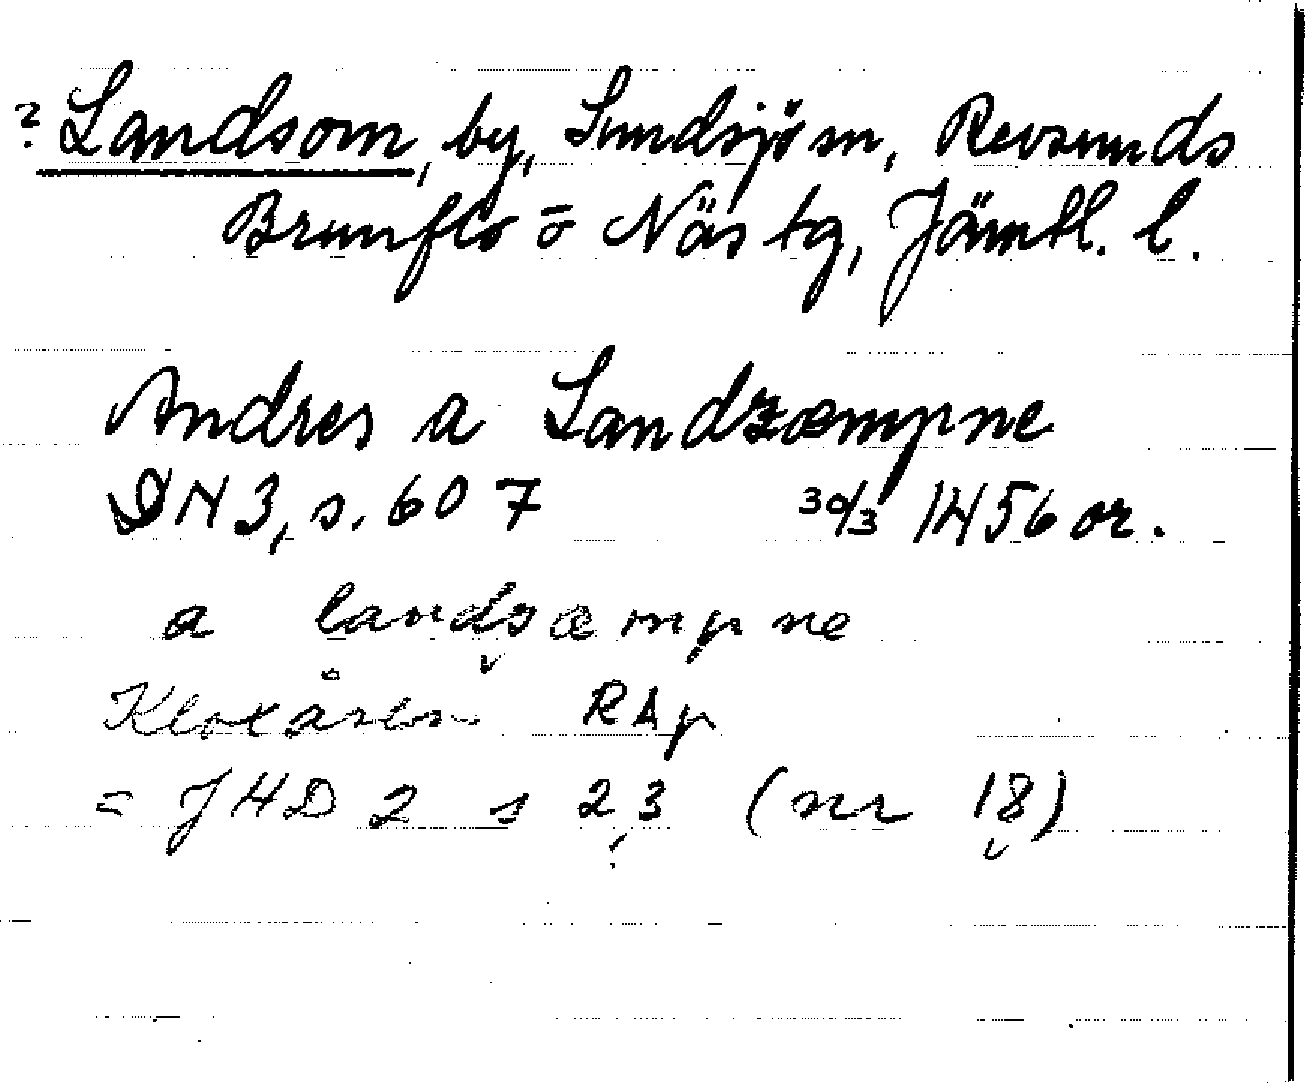 ? Landsom, by, Sundsjö sn, Revsunds
Brunflo o Näs tg, Jämtl. l.
Andres a Landzæmpne
DN 3, s. 607 30/3 1456 or.
a landzæmpne
RAp
= JHD 2 s 23 (nr 18)